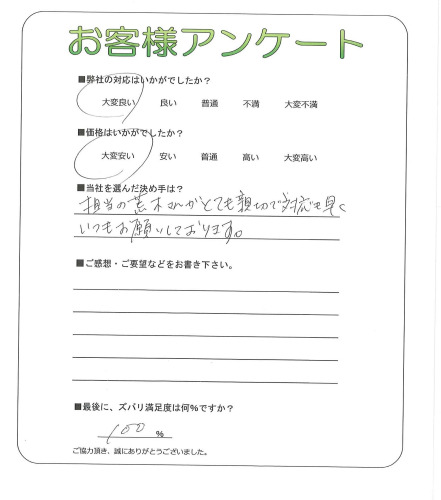 お客様アンケート
■弊社の対応はいかがでしたか？
大変良い 良い 普通 不満 大変不満
■価格はいかがでしたか？
大変安い 安い 普通 高い 大変高い
■当社を選んだ決め手は？
担当の荒木さんがとても親切で対応も早く
いつもお願いしております。
■ご感想・ご要望などをお書き下さい。
■最後に、ズバリ満足度は何％ですか？
100 ％
ご協力頂き、誠にありがとうございました。